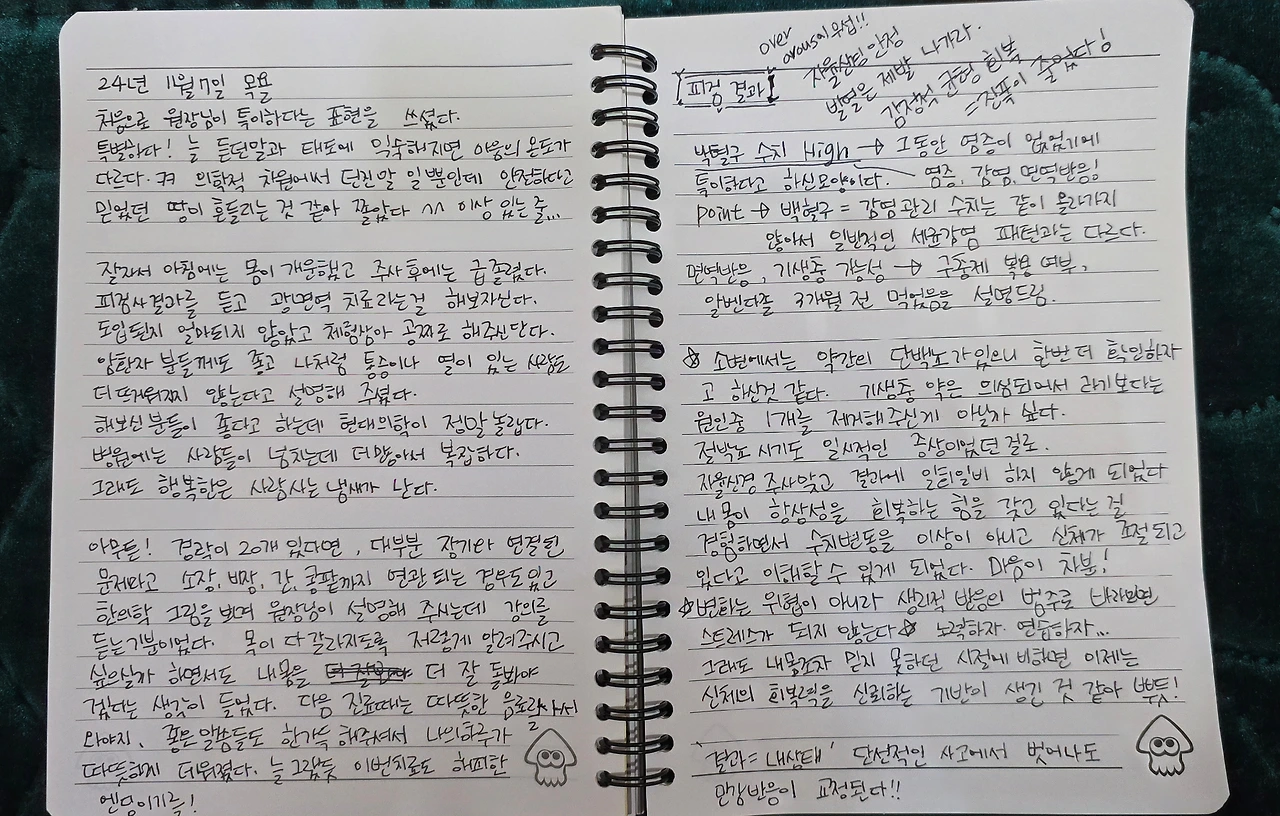 24년 11월 17일 목요
처음으로 원장님이 특이하다는 표현을 쓰셨다.
특별하다! 늘 듣던말과 태도에 익숙해지면 아웅의 온도가
다르다. ㅋㅋ 의학적 차원에서 던진말 일뿐인데 안전하다고
믿었던 땅이 흔들리는 것 같아 쫄았다 ㅆ 이상 있는 줄...
잘자서 아침에는 몸이 개운했고 주사 후에는 급 졸렸다.
피검사결과를 듣고 광면역 치료라는걸 해보자신다.
도입된지 얼마되지 않았고 체험삼아 공짜로 해주신단다.
암환자 분들께도 좋고 나처럼 통증이나 열이 있는 사람도
더 뜨거워지지 않는다고 설명해 주셨다.
해보신분들이 좋다고 하는데 현대의학이 정말 놀랍다.
병원에는 사람들이 넘치는데 더 많아서 복잡하다.
그래도 행복한은 사람사는 냄새가 난다.
아무튼! 경락이 20개 있다면, 대부분 장기와 연결된
문제라고 소장, 비장, 간, 콩팥까지 연관 되는 경우도 있고
한의학 그림을 보며 원장님이 설명해 주시는데 강의를
듣는기분이었다. 목이 다 갈라지도록 저렇게 알려주시고
싶으실까 하면서도 내몸을 더 잘 돌봐야
겠다는 생각이 들었다. 다음 진료때는 따뜻한 음료라
와야지. 좋은 말씀들도 한가득 해주셔서 나의하루가
따뜻하게 데워졌다. 늘 그렇듯 이번치료도 해피한
엔딩이기를!
over
arousal 무섭!!
자율신경 안정
발열은 제발 나가라.
감정적 균형 회복
=진폭이 줄었다!
피검 결과
백혈구 수치 High → 그동안 염증이 없었기에
특이하다고 하신모양이다. 염증, 감염, 면역반응!
point → 백혈구 = 감염관리 수치는 같이 올라가지
않아서 일반적인 세균감염 패턴과는 다르다.
면역반응, 기생충 가능성 → 구충제 복용 여부,
알벤다졸 3개월 전 먹었음을 설명드림.
☆ 소변에서는 약간의 단백뇨가 있으니 한번 더 확인하자
고 하신것 같다. 기생충 약은 의심되어서 라기보다는
원인중 1개를 제거해주신게 아닐까 싶다.
절박뇨 시기도 일시적인 증상이었던 걸로.
자율신경 주사맞고 결과에 일희일비 하지 않게 되었다
내몸이 항상성을 회복하는 힘을 갖고 있다는 걸
경험하면서 수치변동을 이상이 아니고 신체가 조절 되고
있다고 이해할 수 있게 되었다. 마음이 차분!
☆변화는 위협이 아니라 생리적 반응의 범주로 바라보면
스트레스가 되지 않는다☆ 노력하자. 연습하자...
그래도 내몸조차 믿지 못하던 시절에 비하면 이제는
신체의 회복력을 신뢰하는 기반이 생긴 것 같아 뿌듯!
'결과=내상태' 단선적인 사고에서 벗어나도
민감반응이 교정된다!!